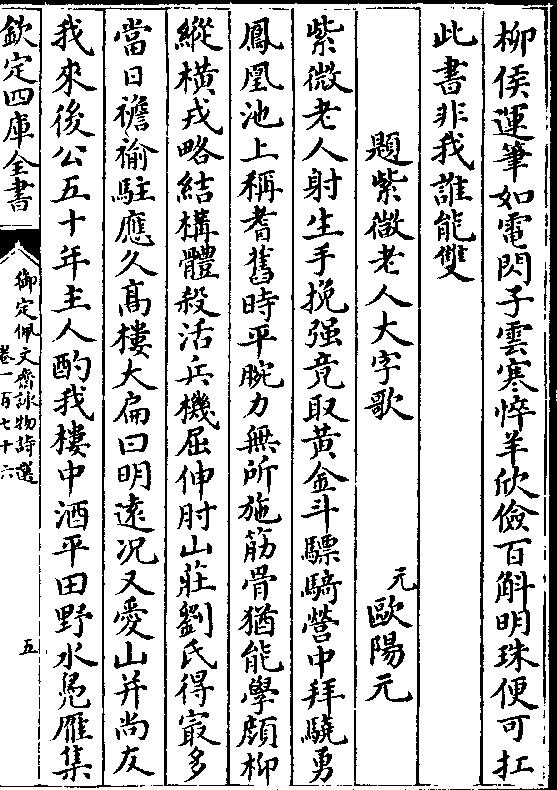 柳侯運筆如電閃子雲寒悴羊欣儉百斛明珠便可扛
此書非我誰能雙
題紫微老人大字歌
元歐陽元
紫微老人射生手挽强竞取黃金斗驃騎營中拜驍勇
鳳凰池上稱耆舊時平腕力無所施筋骨猶能學顔柳
縱橫戎略結構體殺活兵機屈伸肘山莊劉氏得㝡多
當日襜褕駐應久髙樓大扁曰明遠况又愛山并尚友
我來後公五十年主人酌我樓中酒平田野水鳬雁集
欽定四庫全書
御定佩文齋詠物詩選
卷一百七十六
五